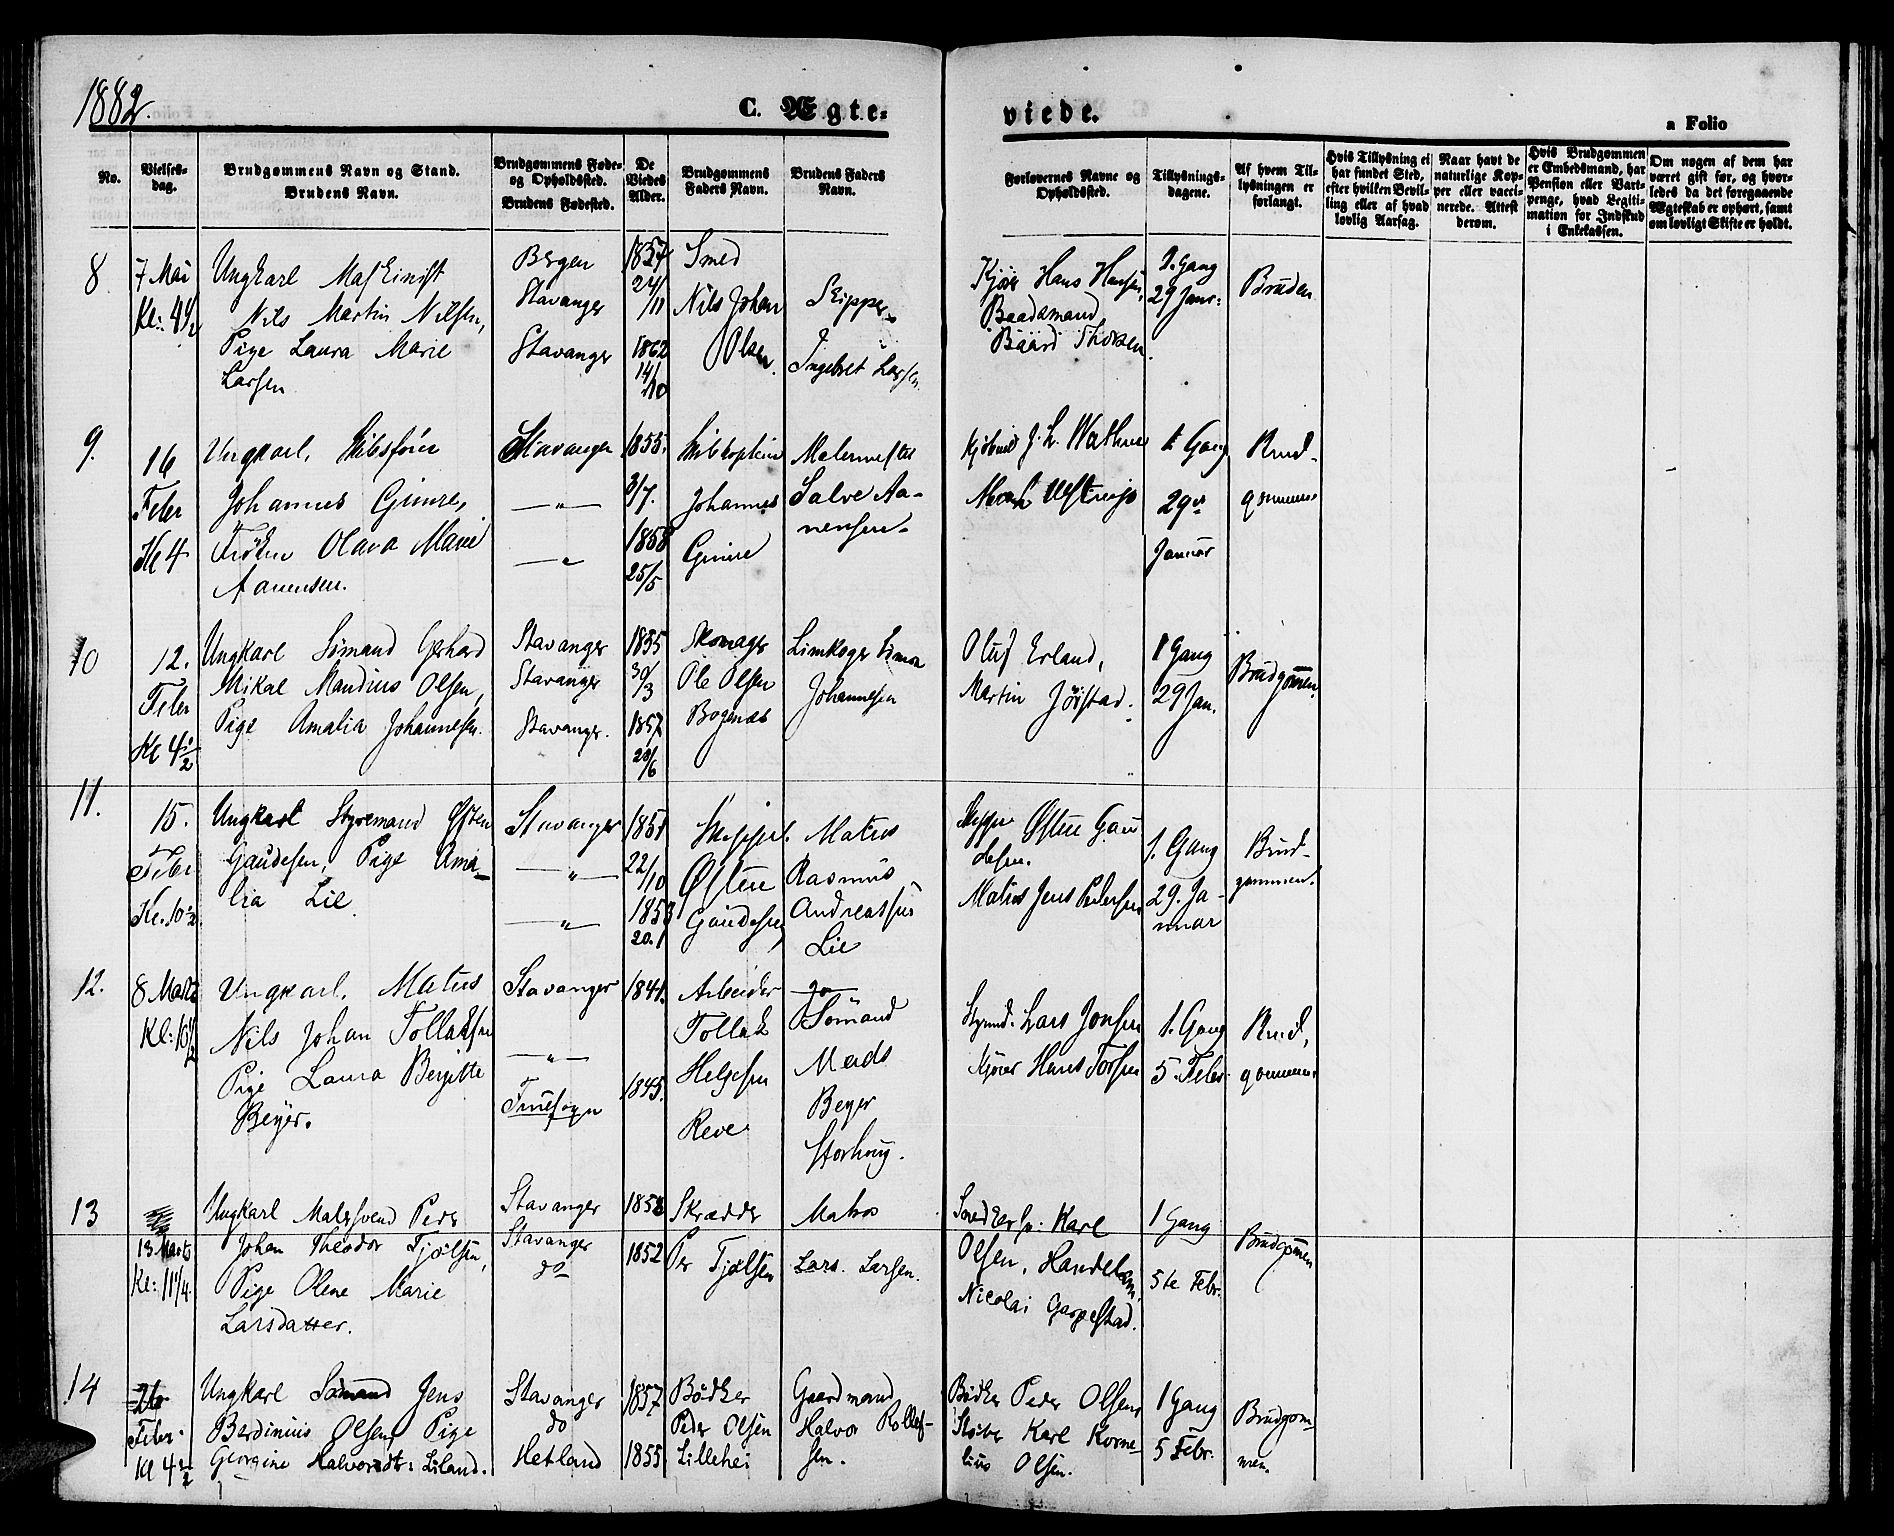 1882.
C. Ægte-
viede.
a Folio
No.
Vielses-
dag.
Brudgommens Navn og Stand.
Brudens Navn.
Brudgommens Føde-
og Opholdssted.
Brudens Fødested.
De
Viedes
Alder.
Brudgommens
Faders Navn.
Brudens Faders
Navn.
Forlovernes Navne og
Opholdssted.
Tillysnings-
dagene.
Af hvem Til-
lysningen er
forlangt.
Hvis Tillysning ei
har fundet Sted,
efter hvilken Bevil-
ling eller af hvad
lovlig Aarsag.
Naar havt de
naturlige Kop-
per eller vacci-
nerede. Attest
derom.
Hvis Brudgommen
er Embedsmand, har
Pension eller Vart-
penge, hvad Legiti-
mation for Indskud
i Enkekassen.
Om nogen af dem har
været gift før, og hvor-
ledes da det foregaaende
Ægteskab er ophørt, samt
om lovligt Skifte er holdt.
8.
7 Mai
Kl: 4 1/2
Ungkarl Maskinist
Nils Martin Nilsen,
Pige Laura Marie
Larsen
Bergen
Stavanger
Stavanger
1857
24/11
1862
14/10
Smed
Nils Johan
Olsen.
Skipper
Ingebret Larsen.
Kjør Hans Hansen,
Baadsmand
Baard Thorsen.
1. Gang
29 Janr:
Bruden
9.
16
Feber
Kl 4
Ungkarl, Skibsfører
Johannes Gimre,
Frøken Olava Marie
Aanensen.
Stavanger
— " —
— " —
1855.
3/7.
1858
25/5
Skibskaptein
Johannes
Gimre
Malermester
Salve Aa-
nensen.
Kjøbmd J. L. Wathne
1 Gang
29de
Januar
Brud-
gommen
10
12.
Feber
Kl 4 1/2
Ungkarl Sømand Gerhard
Mikal Mandius Olsen,
Pige Amalia Johannesen.
Stavanger
Stavanger
Stavanger.
1855
30/3
1857
28/6
Skomager
Ole Olsen
Bogenæs
Limkoger Simon
Johannesen
Oluf Erland,
Martin Jøistad.
1 Gang
29 Jan.
Brudgommen.
11.
15.
Feber
Kl. 10 1/2
Ungkarl Styremand Østen
Gaudesen, Pige Ama-
lia Lie
Stavanger
— " —
— " —
1851
22/10
1853
20.1
Skipper
Østen
Gaudesen
Matros
Rasmus
Andreassen
Lie
Skipper Østen Gau
desen.
Matros Jens Pedersen
1. Gang
29. Ja-
nuar
Brud-
gommen.
12.
8 Marts
Kl: 10 1/2
Ungkarl. Matros
Nils Johan Tollaksen
Pige Laura Bergitte
Beyer.
Stavanger
— " —
Fruesogn
1841.
1845.
Arbeider
Tollak
Helgesen
Reve
Sømand
Mads
Beyer
Storhoug.
Styrmd. Lars Jonsen
Kjører Hans Torsen
1. Gang
5. Feber
Brud,
gommen
13
13 Marts
Kl: 11 1/4.
Ungkarl Malersvend Peder
Johan Theodor Tjølsen,
Pige Olene Marie
Larsdatter.
Stavanger
Stavanger
do
1858
1852
Skrædder
Per Tjølsen
Matros
Lars Larsen.
Snedkersv. Karl
Olsen, Handelsm,
Nicolai Garpestad.
1 Gang
5te Febr.
Brudgommen
14
26
Feber.
Kl 4 1/2
Ungkarl Sømand Jens
Berdinius Olsen, Pige
Georgine Halvorsdtr: Liland.
Stavanger
do
Hetland
1857
1855
Bødker
Peder Olsen
Lillehei
Gaardmand
Halvor Rollef-
sen.
Bødker Peder Olsen
Støber Karl Korne-
lius Olsen.
1 Gang
5 Febr.
Brudgom-
men.